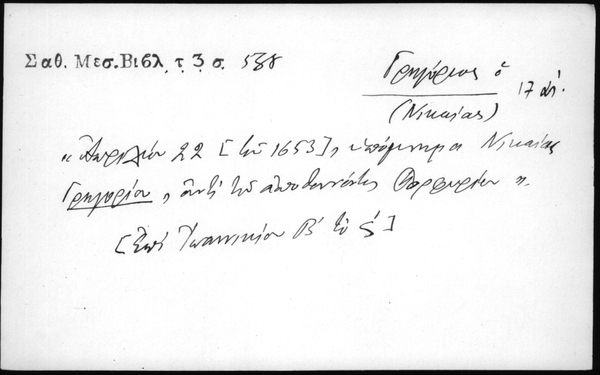 Σαθ. Μεσ. Βιβλ. τ. 3 σ. 588
Γρηγόριος ὁ
(Νικαίας)
17 αἰ.
« Ἀπριλίου 22 [τοῦ 1653], ὑπόμνημα Νικαίας
Γρηγορίου, ἀντὶ τοῦ ἀποθανόντος Πορφυρίου ».
[Ἐπὶ Ἰωαννικίου Β´ τὸ ς´]